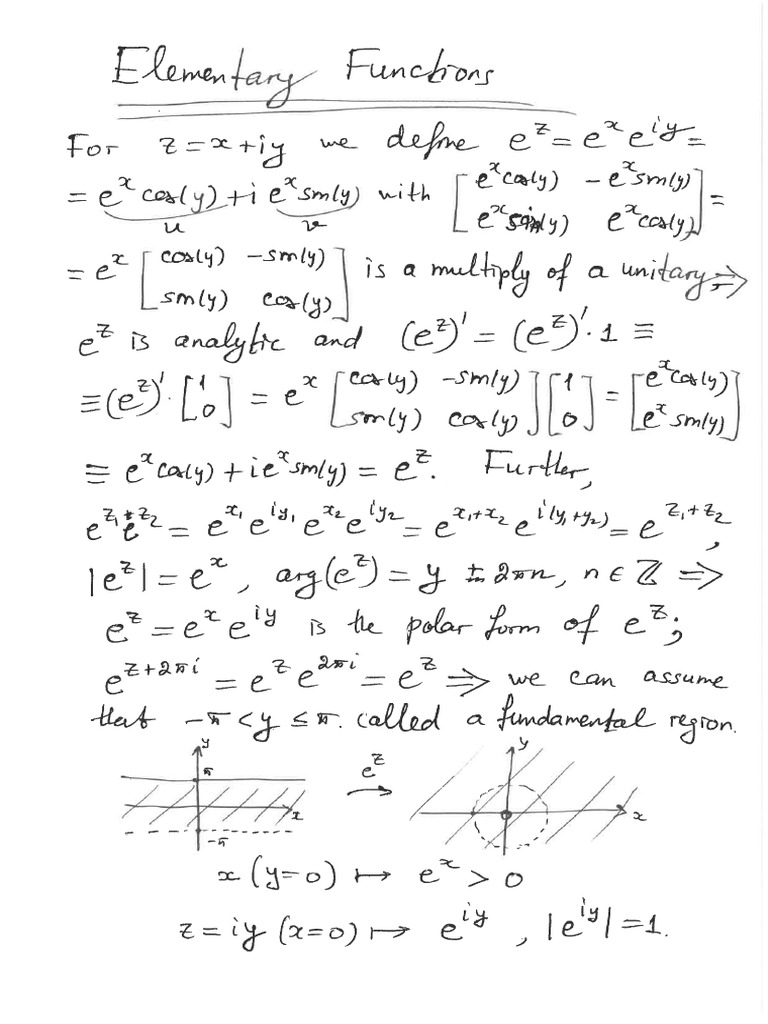 Elementary Functions
For z = x + iy we define e^z = e^x e^{iy} =
= e^x cos(y) + i e^x sin(y) with [e^x cos(y) -e^x sin(y); e^x sin(y) e^x cos(y)] =
u v
= e^x [cos(y) -sin(y); sin(y) cos(y)] is a multiply of a unitary ⇒
e^z is analytic and (e^z)' = (e^z)'·1 ≡
≡ (e^z)'·[1; 0] = e^x [cos(y) -sin(y); sin(y) cos(y)] [1; 0] = [e^x cos(y); e^x sin(y)]
≡ e^x cos(y) + i e^x sin(y) = e^z. Further,
e^{z_1} e^{z_2} = e^{x_1} e^{iy_1} e^{x_2} e^{iy_2} = e^{x_1+x_2} e^{i(y_1+y_2)} = e^{z_1+z_2},
|e^z| = e^x, arg(e^z) = y ± 2πn, n ∈ ℤ ⇒
e^z = e^x e^{iy} is the polar form of e^z;
e^{z+2πi} = e^z e^{2πi} = e^z ⇒ we can assume
that -π < y ≤ π. called a fundamental region.
y π x -π e^z → y x
x (y=0) ↦ e^x > 0
z = iy (x=0) ↦ e^{iy}, |e^{iy}| = 1.